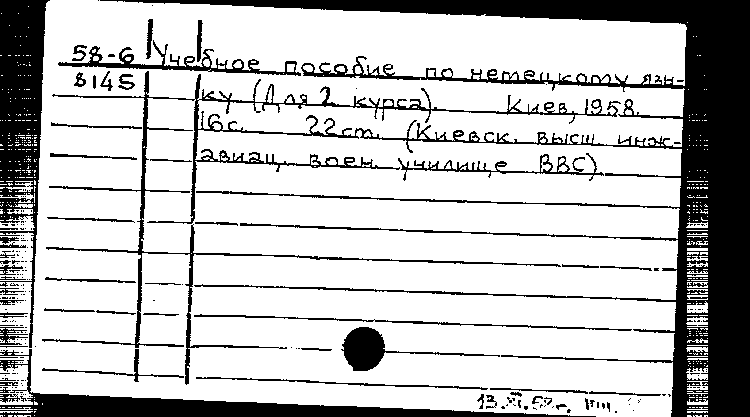 58-6 Учебное пособие по немецкому язы-
8145 ку (Для 2 курса). Киев, 1958.
16с. 22см. (Киевск. высш. инж.-
авиац. воен. училище ВВС).